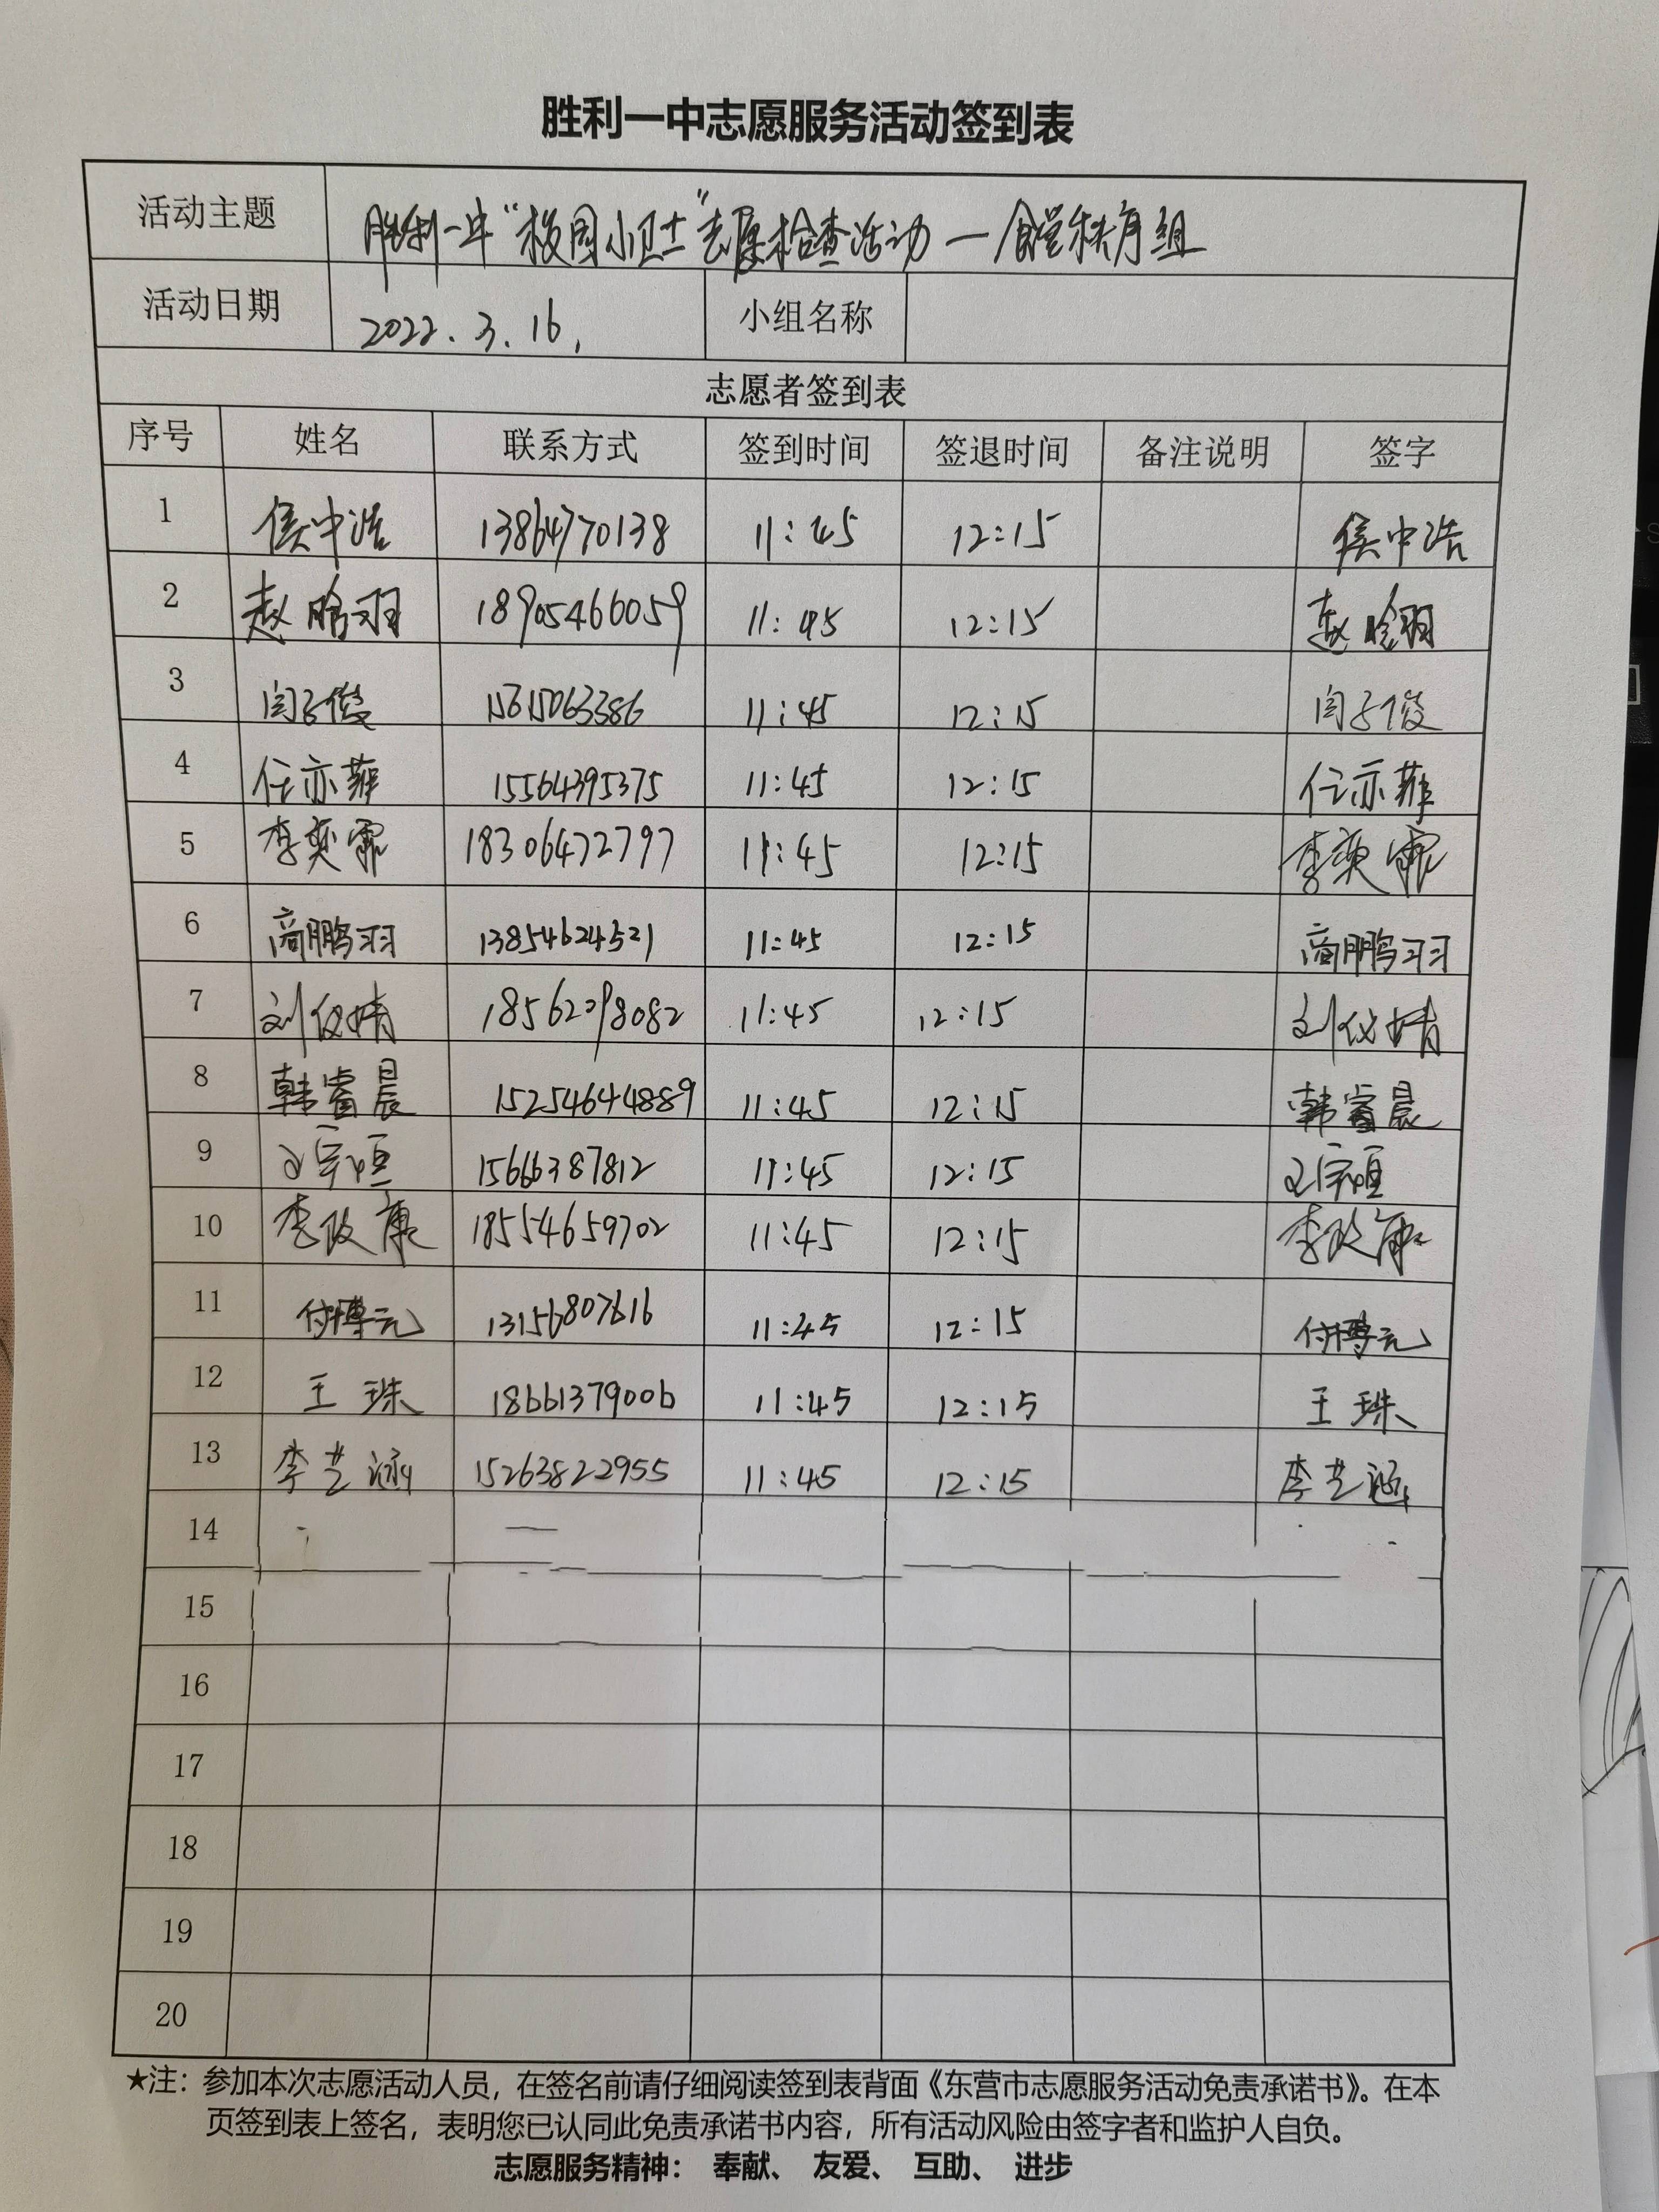 胜利一中志愿服务活动签到表
活动主题 胜利一中“校园小卫士”志愿检查活动—食堂秩序组
活动日期 2022.3.16. 小组名称
志愿者签到表
序号 姓名 联系方式 签到时间 签退时间 备注说明 签字
1 侯中浩 13864770138 11:45 12:15 侯中浩
2 赵鹏羽 18905466059 11:45 12:15 赵鹏羽
3 闫子俊 15615063386 11:45 12:15 闫子俊
4 任亦菲 15564395375 11:45 12:15 任亦菲
5 李奕霏 18306472797 11:45 12:15 李奕霏
6 商鹏羽 13854624521 11:45 12:15 商鹏羽
7 刘仪婧 18562298082 11:45 12:15 刘仪婧
8 韩睿晨 15254644889 11:45 12:15 韩睿晨
9 15666387812 11:45 12:15
10 李政康 18554659702 11:45 12:15 李政康
11 付博元 13156807616 11:45 12:15 付博元
12 王珠 18661379006 11:45 12:15 王珠
13 李艺涵 15263822955 11:45 12:15 李艺涵
14
15
16
17
18
19
20
★注：参加本次志愿活动人员，在签名前请仔细阅读签到表背面《东营市志愿服务活动免责承诺书》。在本
页签到表上签名，表明您已认同此免责承诺书内容，所有活动风险由签字者和监护人自负。
志愿服务精神： 奉献、 友爱、 互助、 进步